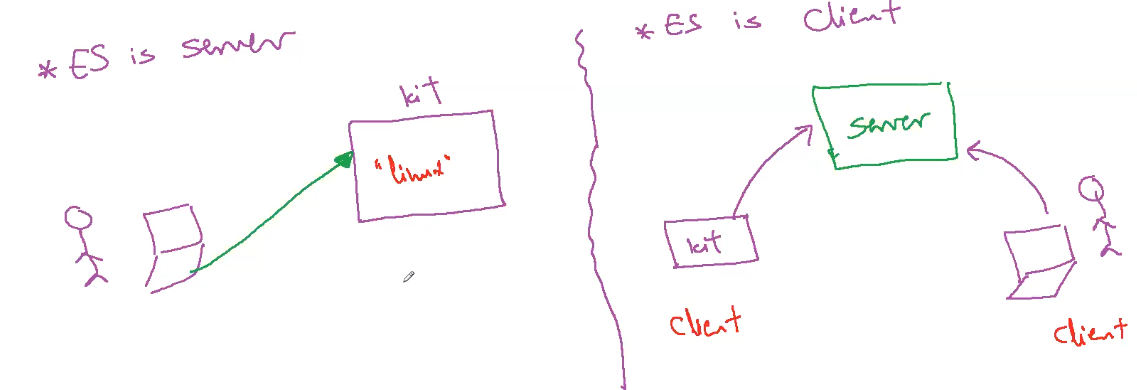 * ES is server
kit
"linux"
* ES is client
server
kit
client
client